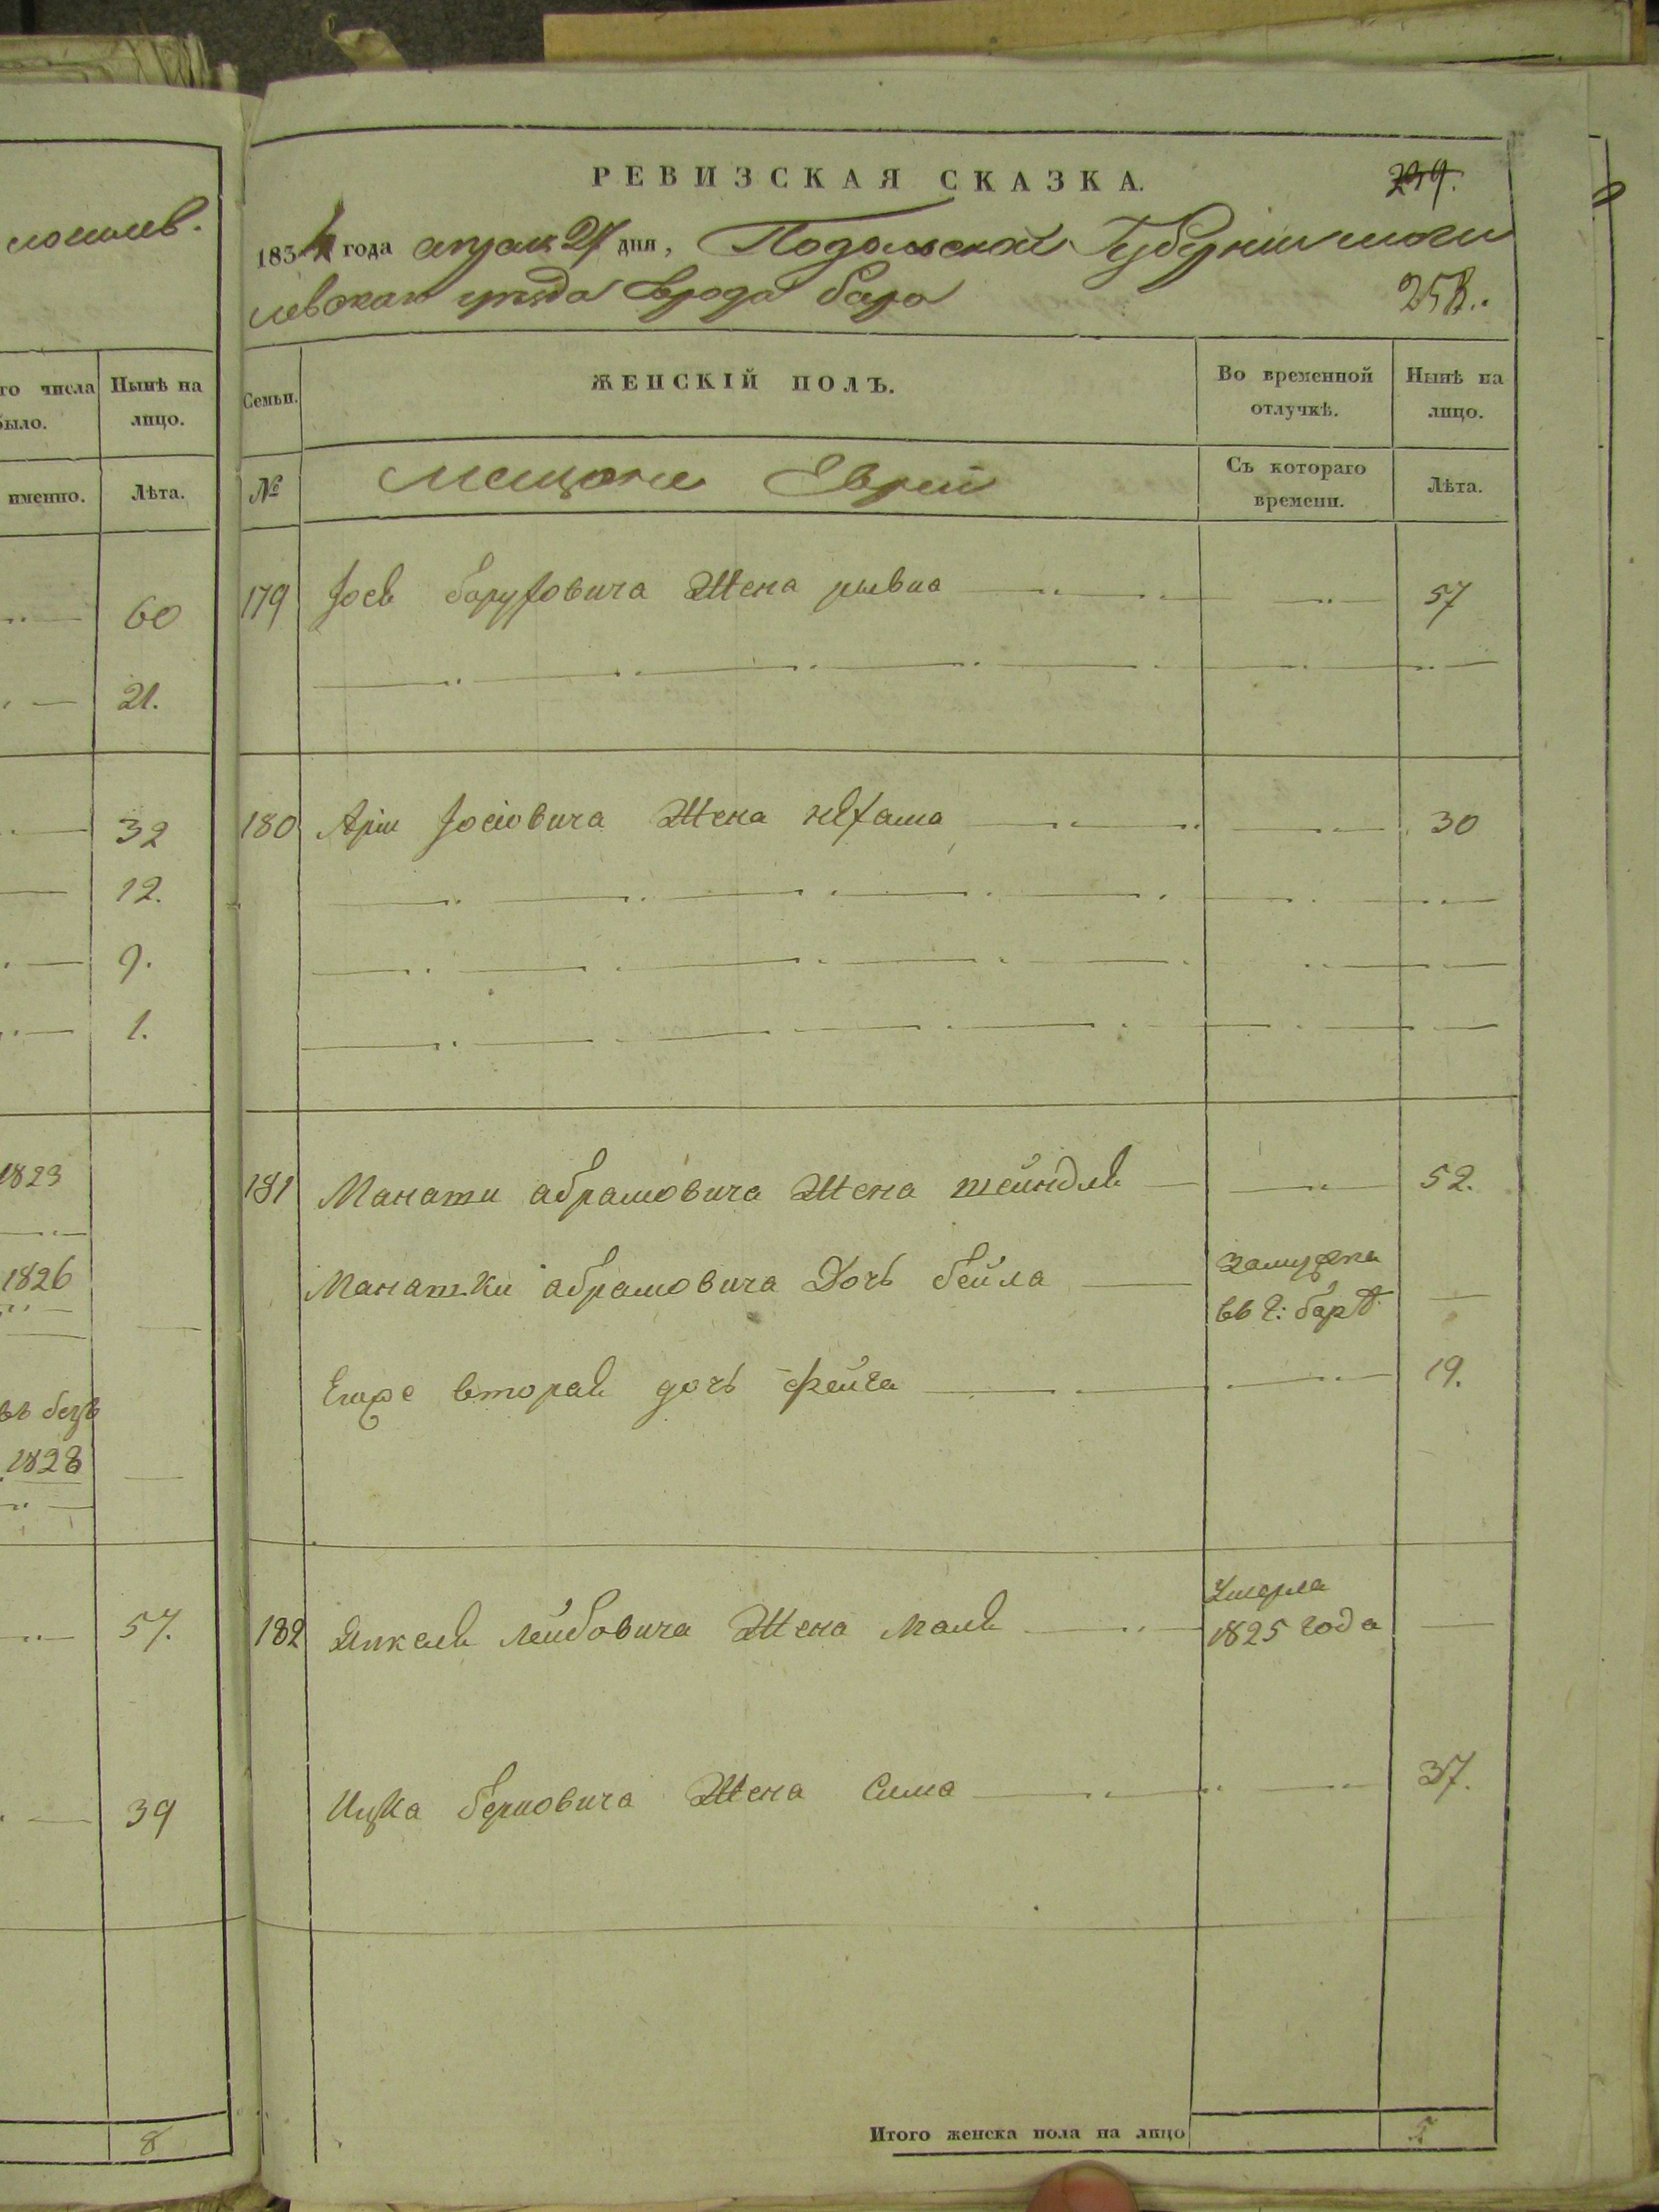 могилев.
го числа
было.
Нынѣ на
лицо.
именно.
Лѣта.
60
21.
32
12.
9.
1.
1823
1826
въ безъ
1828
57.
39
8
РЕВИЗСКАЯ СКАЗКА.
239.
1834 года апреля 27 дня, Подольской Губернии моги
левскаго уезда города бара
258.
Семьи.
ЖЕНСКІЙ ПОЛЪ.
Во временной
отлучкѣ.
Нынѣ на
лицо.
№
Мещане Евреи
Съ котораго
времени.
Лѣта.
179 Іося баруховича Жена рывка 57
180 Арш Іосіовича Жена нехама 30
181 Манати абрамовича Жена шейндля 52.
Манатки абрамовича Дочь бейла
Замужна
въ г: барѣ
Еще вторая дочь фейга 19.
182 Янкеля лейбовича Жена Маля
Умерла
1825 года
Ицка берковича Жена Сима 37.
Итого женска пола на лицо
5